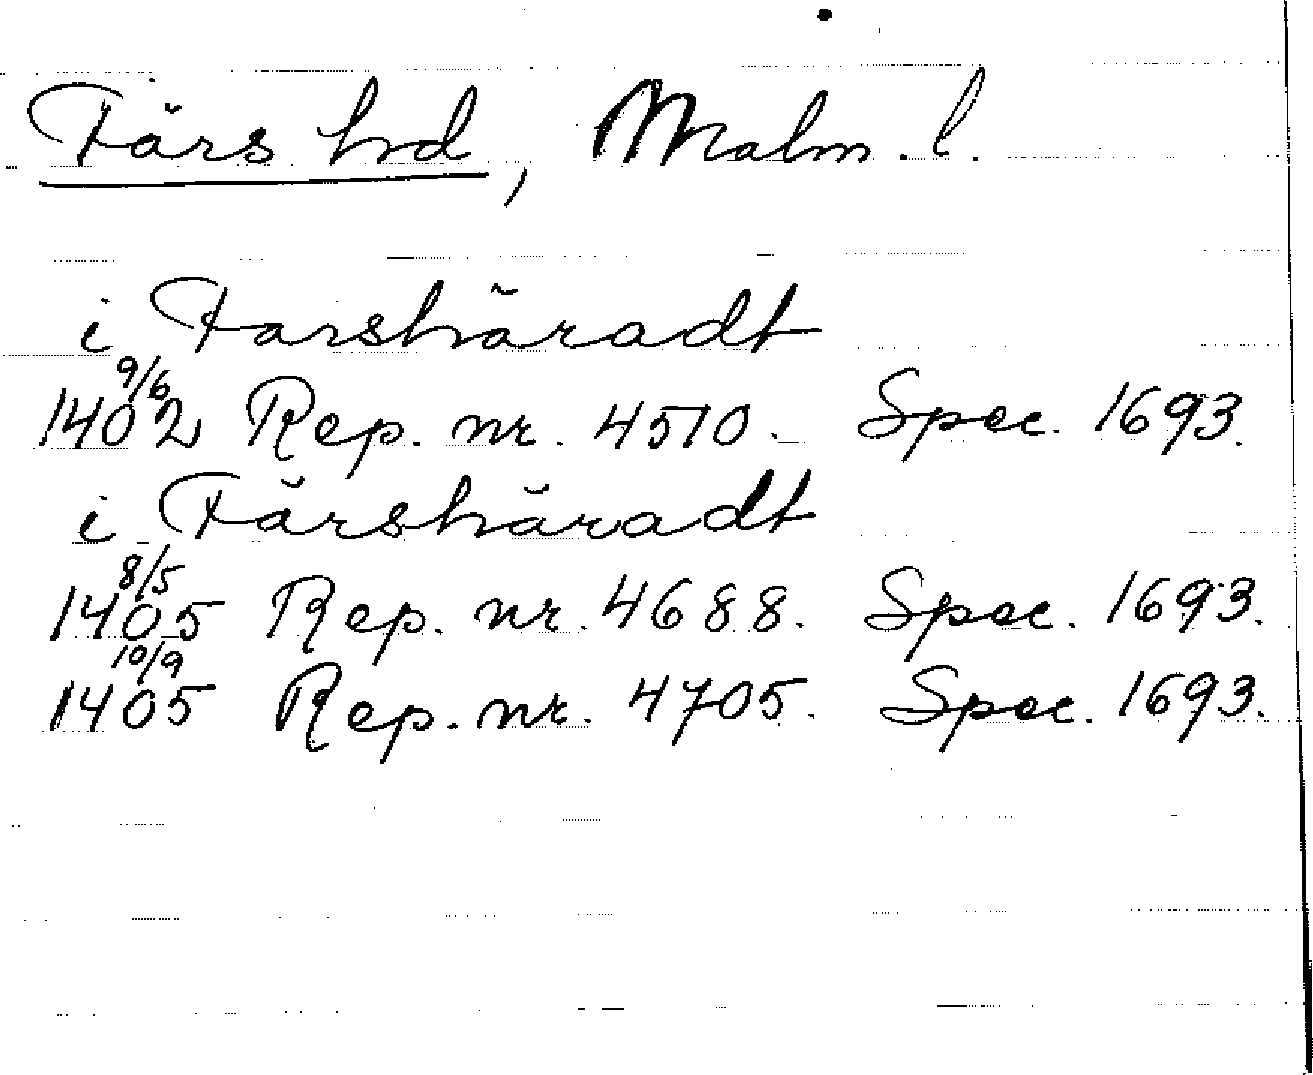 Färs hd, Malm. l.
i Farshäradt
1402 9/6 Rep. nr. 4510. Spec. 1693.
i Färshäradt
1405 8/5 Rep. nr. 4688. Spec. 1693.
1405 10/9 Rep. nr. 4705. Spec. 1693.